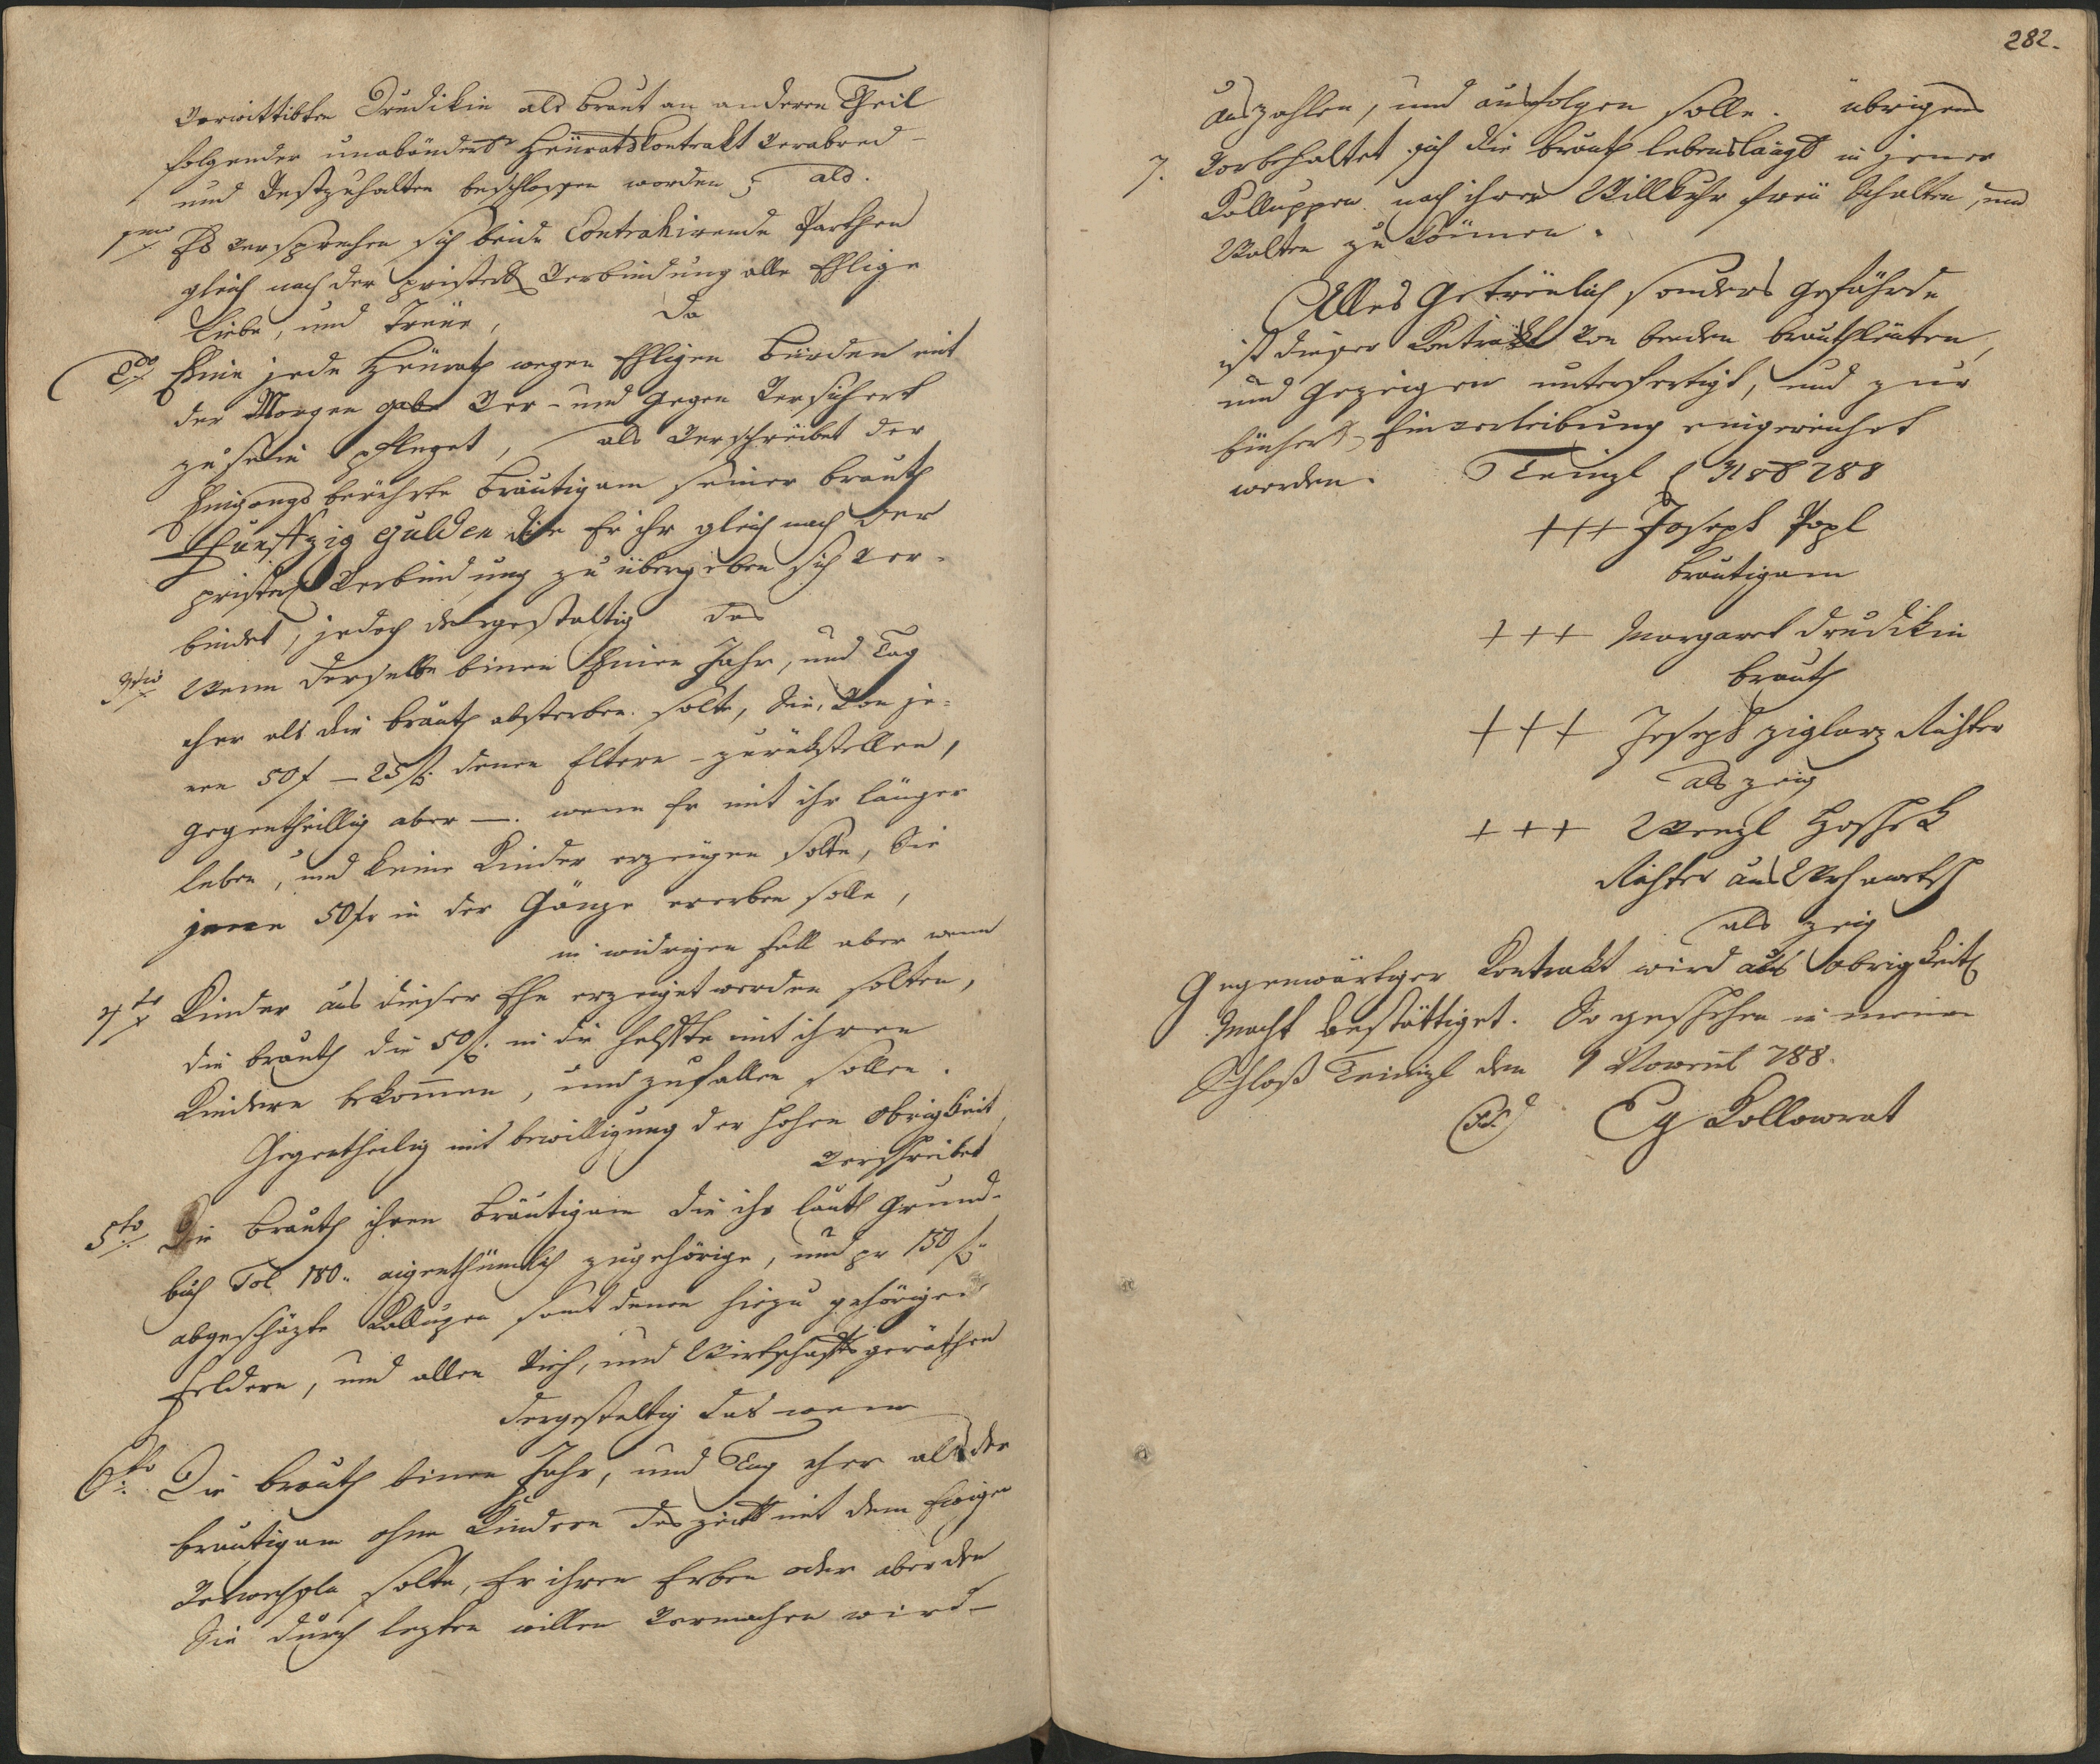 Verwittibten Drudikin als braut an anderen Theil
folgender unabänderl. Heüraths Contrakt verabred-
und Vestzuhalten beschlossen worden; als.
1mo Es versprechen sich beide Contrahirende Parthen
gleich nach der pristerl. Verbindung alle Ehlige
Liebe, und Treüe, da
2do Eine jede Heürath wegen Ehligen bürden mit
der Morgen gabe Ver- und gegen Versichert
zu sein pfleget, als Verschreibet der
Eingangs berührte bräutigam seiner brauth
Funffzig gulden die Er ihr gleich nach der
pristerl. Verbindung zu übergeben sich ver-
bindet, jedoch dergestaltig das
3tio Wenn derselbe binen Einen Jahr, und Tag
eher als die brauth absterben solte, Sie, Von je-
nen 50 f – 25 fl. denen Eltern – zurükstellen,
gegentheillig aber –. wenn Er mit ihr länger
leben, und keine Kinder erzeügen solte, Sie
jenen 50 fr in der Gänze ererben solle,
in widrigen fall aber wenn
4to Kinder aus dieser Ehe erzeiget werden solten,
die brauth die 50 fl. in die helffte mit ihren
Kindern bekommen, und zufallen sollen.
Gegentheilig mit bewilligung der hohen Obrigkeit,
Verschreibet
5to Die brauth ihren bräutigam die ihr lauth Grund-
buch Fol 180.. aigenthümlich zugehörige, und pr 150 fl..
abgeschäzte Kalluppen samt denen hiezu gehörigen
feldern, und allen Vieh, und Wirtschaftsgeräthen
dergestaltig das wenn
6to Die brauth binen Jahr, und Tag eher als der
bräutigam ohne Kindern das zeitl mit dem Ewigen
Verwechsln solte, Er ihren Erben oder aber den
Sie durch lezten willen Vermachen wird –
282.
auszahlen, und ausfolgen solle. übrigens
7. Vorbehaltet sich die brauth lebenslängl in jener
Kalluppen nach ihrer Willkuhr freü Schalten, und
Walten zu können.
Alles Getreülich sonders gefährde
ist dieser Kontrakt von beeden brauthleüten,
und Gezeigen unterfertigt, und zur
bücherl. Einverleibung eingereichet
worden. Teinizl 788
+++ Joseph Popl
bräutigam
+++ Margaret Drudikin
brauth
+++ Joseph ziglarz Richter
als zeig
+++ Wenzl Hoschek
Richter aus
als zeig
Gegenwärtiger Kontrakt wird aus obrigkeitl.
Macht bestättiget. So geschehen in meinen
Schloß Teinizl den 1 Novembl 788.
Kollowrat